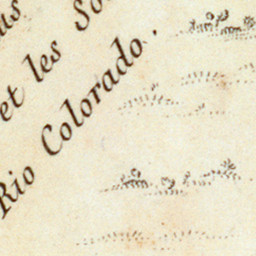 et les
Rio Colorado.